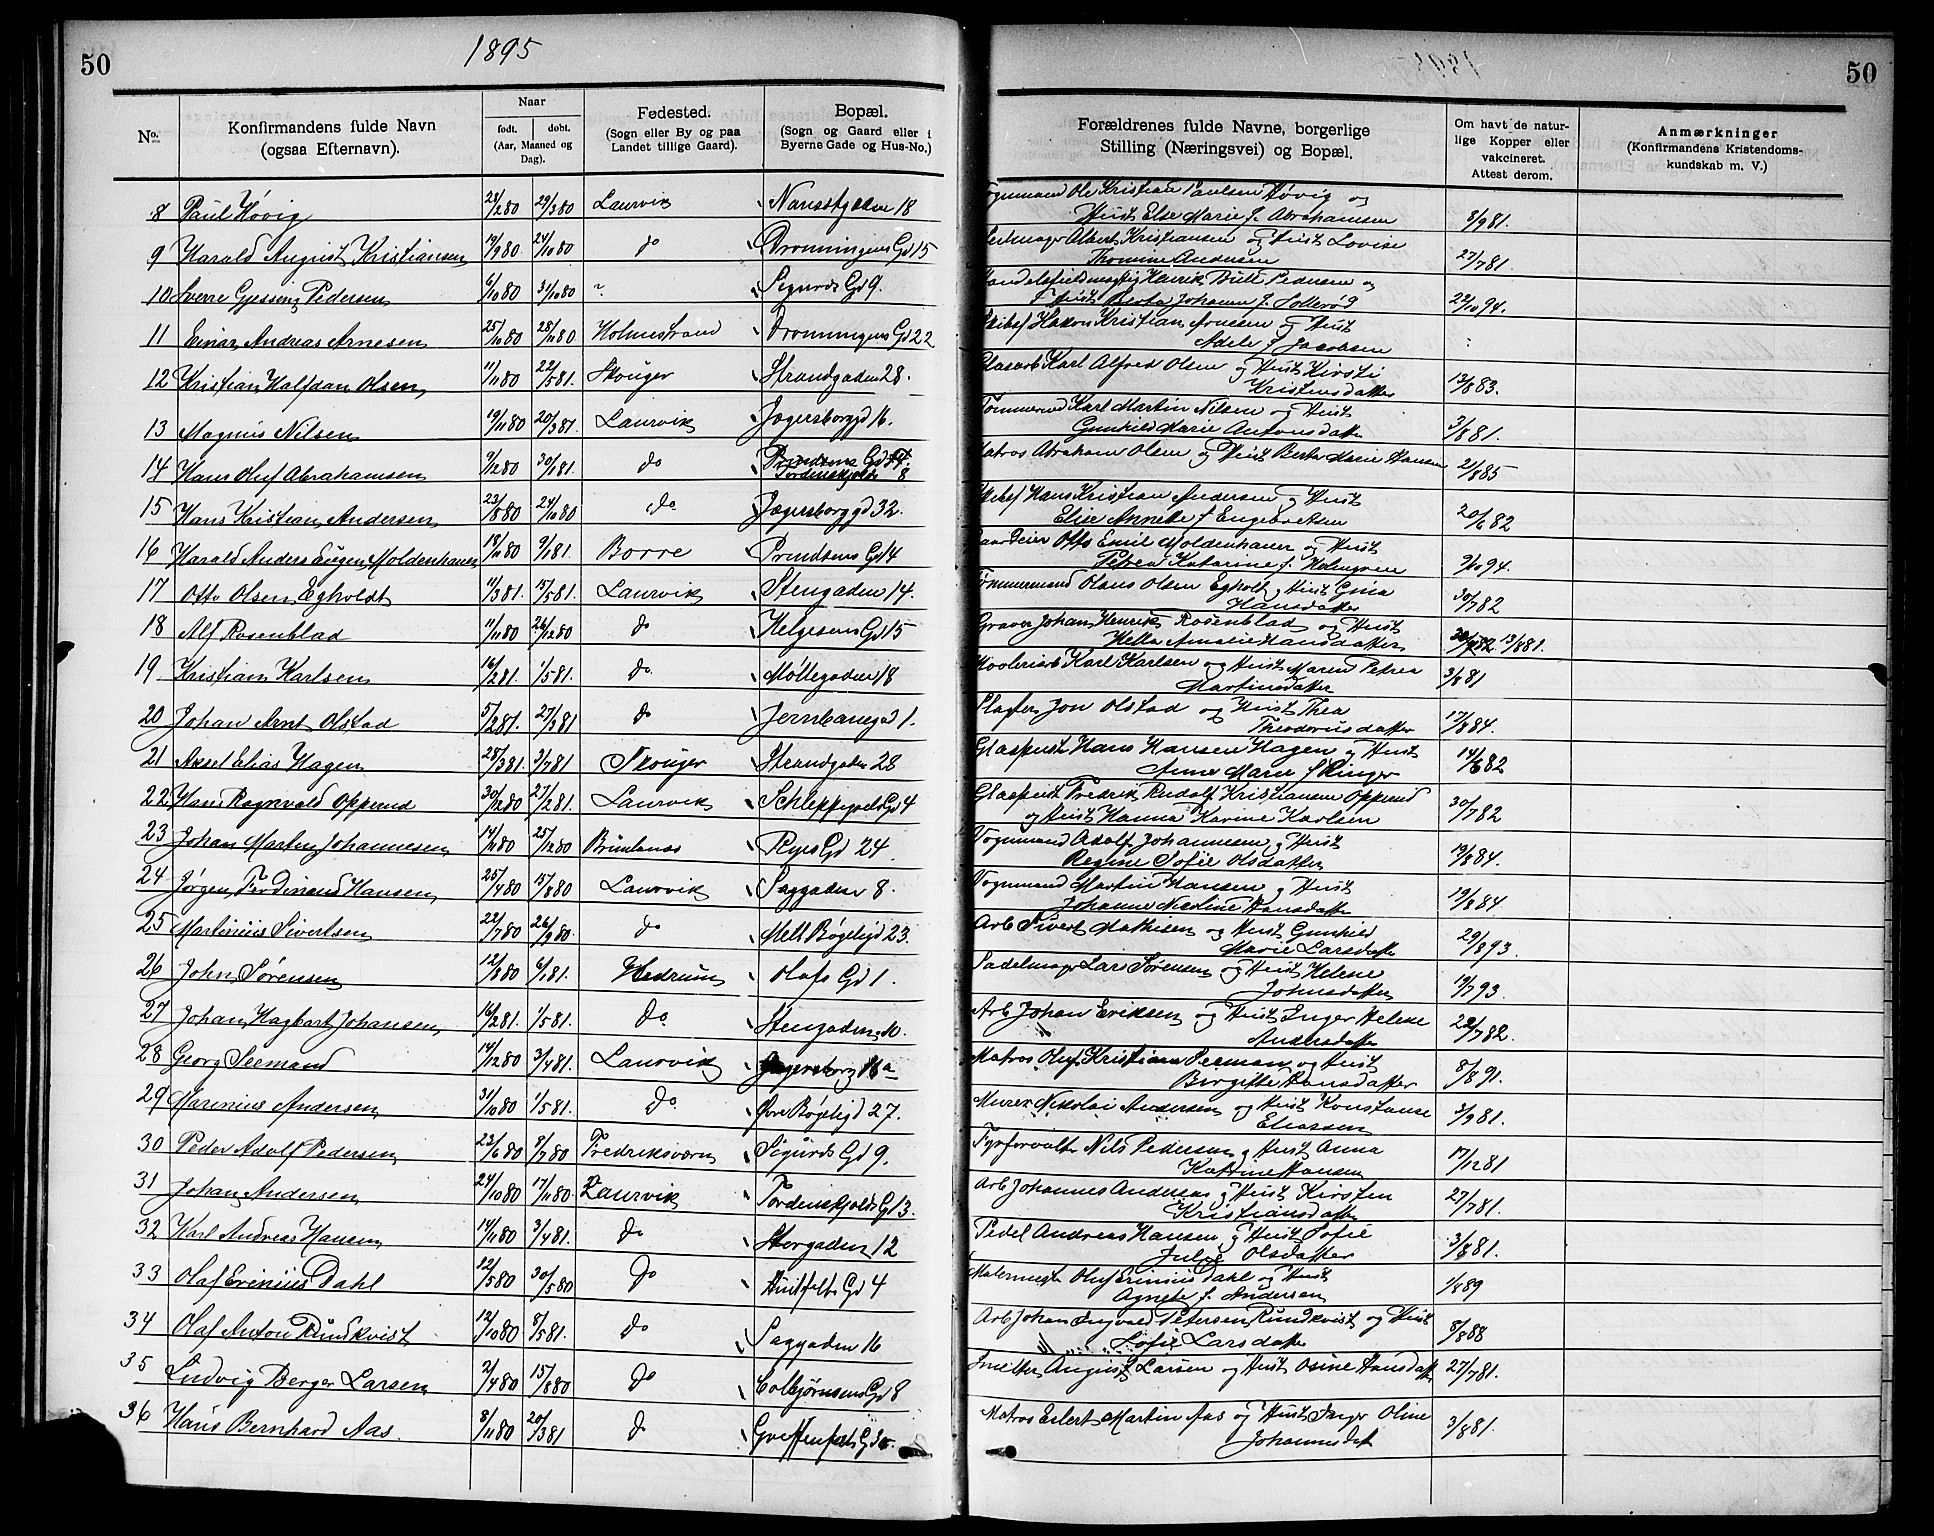 50
1895
50
No.
Konfirmandens fulde Navn
(ogsaa Efternavn).
Naar
født.
døbt.
(Aar, Maaned og
Dag).
Fødested.
(Sogn eller By og paa
Landet tillige Gaard).
Bopæl.
(Sogn og Gaard eller i
Byerne Gade og Hus-No.)
Forældrenes fulde Navne, borgerlige
Stilling (Næringsvei) og Bopæl.
Om havt de natur-
lige Kopper eller
vakcineret.
Attest derom.
Anmærkninger
(Konfirmandens Kristendoms-
kundskab m. V.)
8 Paul Høvig 24/280 29/380 Laurvik Nansetgaden 18 Vognmand Ole Kristian Paulsen Høvig og
Hust Else Marie f. Abrahamsen 8/981.
9 Harald August Kristiansen /980 24/1080 do Dronningens Gd 15 Albert Kristiansen og Hust Lovise
Thomine Andersen 27/781.
10 Sverre Gjessing Pedersen 6/1080 31/1080 Sigurds Gd 9. Handelsfuldmægtig Henrik Bull Pedersen og
Hust Berta Johanne f. 22/1094.
11 Einar Andreas Arnesen 25/1080 28/1180 Holmestrand Dronningens Gd 22 Hakon Kristian Arnesen og Hust
Adele f Jacobsen
12 Kristian Halfdan Olsen 11/1180 22/581. Skouger Strandgaden 28. Glasarb Karl Alfred Olsen og Hust Kirsti
Kristensdatter 13/883.
13 Magnus Nilsen 19/1180 20/381. Laurvik Jegersborggd 16. Tømmermd Karl Martin Nilsen og Hust
Gunhild Marie Antonsdatter 3/881.
14 Hans Oluf Abrahamsen /1280 30/181. do Prindsens Gd 14.
Tordenskjolds 8 Matros Abraham Olsen og Hust Berta Marie Hansen 2/885
15 Hans Kristian Andersen 23/880 24/1080 do Jegersborggd 32. Hans Kristian Andersen og Hust
Elise Annette f Engebretsen 20/682
16 Harald Anders Eugen Moldenhauer 18/1180 9/181. Borre Prindsens Gd 4 Otto Emil Moldenhauer og Hust
Petrea Katarine f. 9/1094.
17 Otto Olsen Egholdt 11/381. 15/581. Laurvik Stengaden 14. Tømmermand Olaus Olsen Egholt og Hust Gina
Hansdatter 30/782
18 Alf Rosenblad 11/1180 26/1280 do Helgesens Gd 15 Graver Johan Henrik Rosenblad og Hust
Amalie Hansdatter 13/881.
19 Kristian Karlsen 16/281. 1/581. do Møllegaden 18 Karl Karlsen og Hust Maren Petrea
Martinsdatter 3/881
20 Johan Arnt Olstad 5/281. 27/381 do Jernbanegd 1. Slagter Jon Olstad og Hust Thea
Theodorusdatter 17/884.
21 Axel Elias Hagen 28/381. 3/781 Skouger Strandgaden 28 Glaspust Hans Hansen Hagen og Hust
Anne Marie f Ringer 14/682
22 Hans Ragnvald Oppeud 30/1280 27/281. Laurvik Schleppegrels Gd 4 Glaspust Fredrik Rudolf Kristiansen Oppeud
og Hust Hanna Karine Karlsen 30/782
23 Johan Martin Johannesen 14/1180 25/1280 Brunlanes Ryes Gd 24. Vognmand Adolf Johannesen og Hust
Regine Sofie Olsdatter 19/884.
24 Jørgen Ferdinand Hansen 25/480 15/880 Laurvik Saggaden 8. Vognmand Martin Hansen og Hust
Johanne Nicoline Hansdatter 19/884
25 Martinius Sivertsen 22/780 26/980 do Mell Bøgeligd 23. Arb Sivert Mathisen og Hust Gunhild
Marie Larsdatter 29/893.
26 John Sørensen 12/880 6/181. Hedrum Olafs Gd 1. Sadelmager Lars Sørensen og Hust Helene
Johnsdatter 9/793.
27 Johan Hagbart Johansen 16/281. 1/581. Do Stengaden 10. Arb Johan Eriksen og Hust Inger Helene
Andersdatter 22/782.
28 Georg Seemand 14/1280 3/481. Laurvik Jegersborg 16a Matros Oluf Kristian Seeman og Hust
Birgitte Hansdatter 8/891.
29 Marinius Andersen 31/1080 1/581. Do Øvre Bøgeligd 27. Murer Nikolai Andersen og Hust Konstanse
Eliassen 3/981.
30 Peder Adolf Pedersen 23/680 8/780 Fredriksværn Sigurds Gd 9. Fyrforvalter Nils Pedersen og Hust Anna
Katrine Hansen 17/1281
31 Johan Andersen 24/1080 17/1180 Laurvik Tordenskjolds Gd 3. Arb Johannes Andreas og Hust Kirsten
Kristiansdatter 27/781.
32 Karl Andreas Hansen 14/1180 3/481. Do Storgaden 12 Pedel Andreas Hansen og Hust Sofie
Julie Olsdatter 3/881.
33 Olaf Erinius Dahl 12/580 30/580 Do Huitfelts Gd 4 Malermester Oluf Erinius Dahl og Hust
Agnete f. Andersen 1/889
34 Olaf Anton Rundkvist 12/1080 8/581. Do Saggaden 16 Arb Johan Ingvald Petersen Rundkvist og Hust
Sofie Larsdatter 8/888
35 Ludvig Berger Larsen 2/480 15/880 Do Colbjørnsens Gd 8 August Larsen og Hust Osine Hansdatter 27/781.
36 Hans Bernhard Aas. 8/1180 20/381 Do Griffenfelts Gd Matros Eilert Martin Aas og Hust Inger Oline
Johannesdat 3/881.